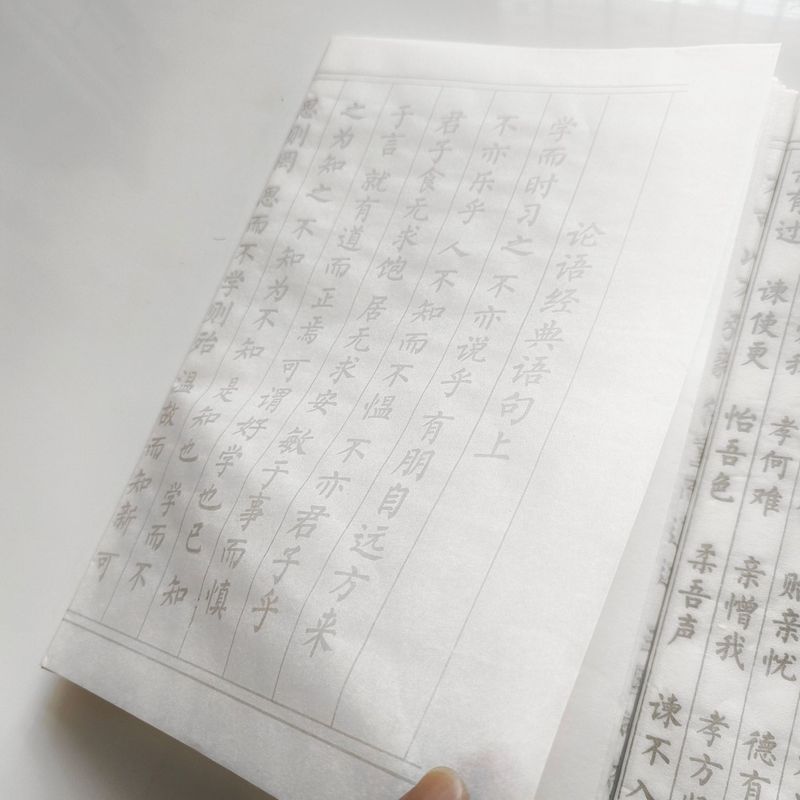 论语经典语句上
学而时习之 不亦说乎 有朋自远方来
不亦乐乎 人不知而不愠 不亦君子乎
君子食无求饱 居无求安 敏于事而慎
于言 就有道而正焉 可谓好学也已 知
之为知之 不知为不知 是知也 学而不
思则罔 思而不学则殆 温故而知新 可
亲忧 德有
我 孝何难 亲憎我 孝方
有过 谏使更 怡吾色 柔吾声 谏不入